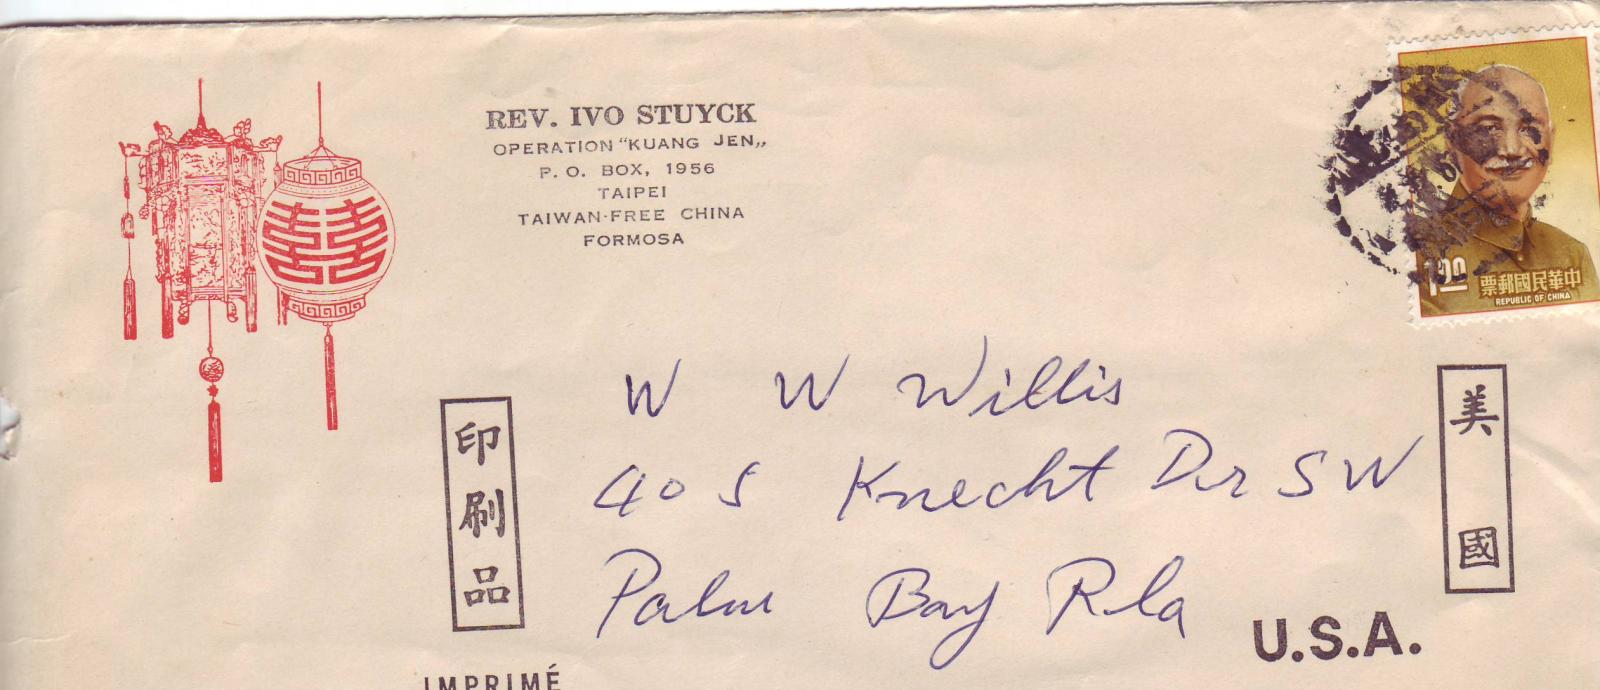 REV. IVO STUYCK
OPERATION "KUANG JEN„
P. O. BOX, 1956
TAIPEI
TAIWAN-FREE CHINA
FORMOSA
中華民國郵票
REPUBLIC OF CHINA
W W Willis
405 Knecht Dr SW
Palm Bay Fla
U.S.A.
美國
印刷品
IMPRIMÉ